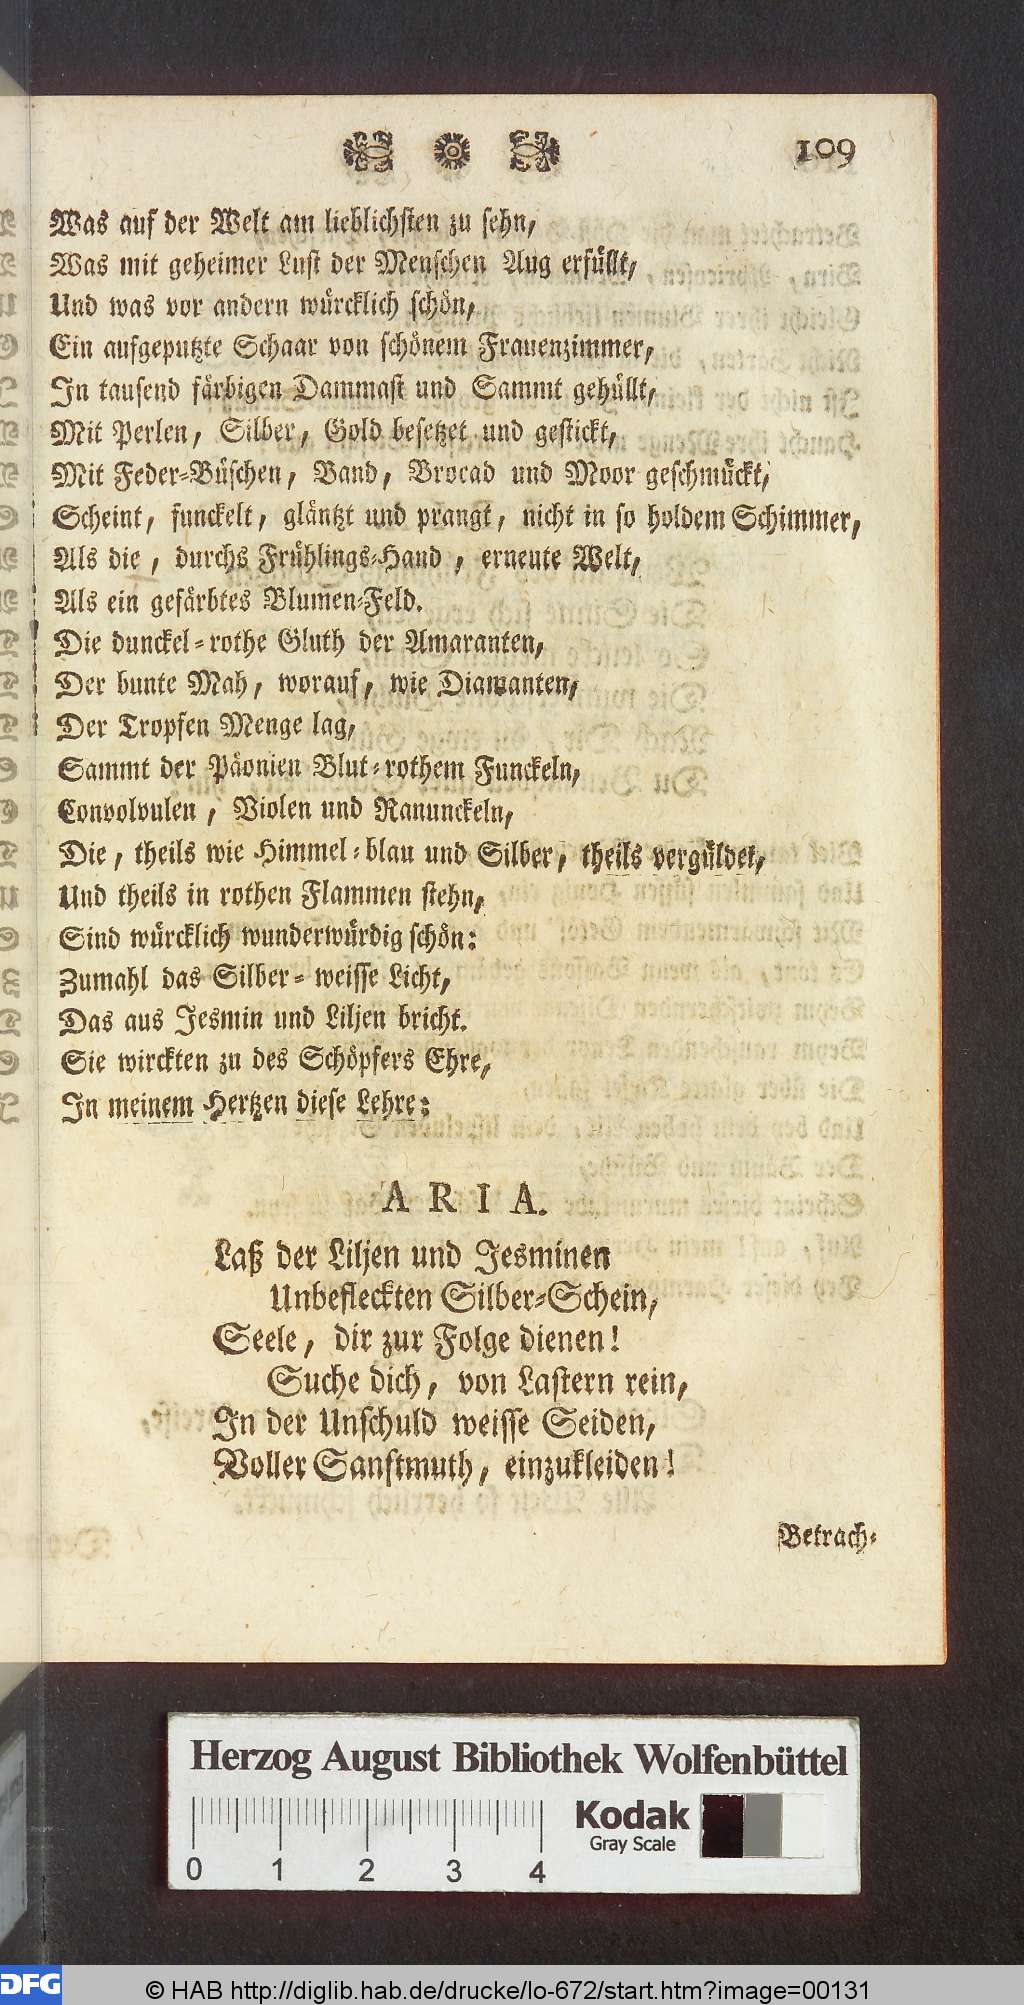 109
Was auf der Welt am lieblichsten zu sehn,
Was mit geheimer Lust der Menschen Aug erfüllt,
Und was vor andern würcklich schön,
Ein aufgeputzte Schaar von schönem Frauenzimmer,
In tausend färbigen Dammast und Sammt gehüllt,
Mit Perlen, Silber, Gold besetzet und gestickt,
Mit Feder-Büschen, Band, Brocad und Moor geschmückt,
Scheint, funckelt, gläntzt und prangt, nicht in so holdem Schimmer,
Als die, durchs Frühlings-Hand, erneute Welt,
Als ein gefärbtes Blumen-Feld.
Die dunckel-rothe Gluth der Amaranten,
Der bunte Mah, worauf, wie Diamanten,
Der Tropfen Menge lag,
Sammt der Päonien Blut-rothem Funckeln,
Convolvulen, Violen und Ranunckeln,
Die, theils wie Himmel-blau und Silber, theils vergüldet,
Und theils in rothen Flammen stehn,
Sind würcklich wunderwürdig schön:
Zumahl das Silber-weisse Licht,
Das aus Jesmin und Liljen bricht.
Sie wirckten zu des Schöpfers Ehre,
In meinem Hertzen diese Lehre:
ARIA.
Laß der Liljen und Jesminen
Unbefleckten Silber-Schein,
Seele, dir zur Folge dienen!
Suche dich, von Lastern rein,
In der Unschuld weisse Seiden,
Voller Sanftmuth, einzukleiden!
Betrach-
Herzog August Bibliothek Wolfenbüttel
Kodak
Gray Scale
0 1 2 3 4
DFG
© HAB http://diglib.hab.de/drucke/lo-672/start.htm?image=00131